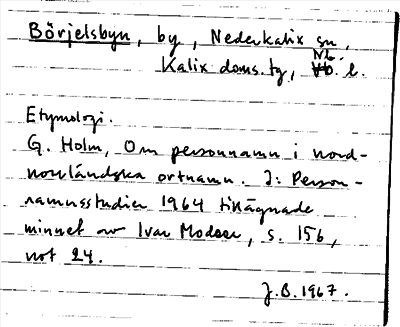 Börjelsbyn, by, Nederkalix sn,
Kalix doms. tg, Nb. l.
Etymologi.
G. Holm, Om personnamn i nord-
norrländska ortnamn. I: Person-
namnsstudier 1964 tillägnade
minnet av Ivar Modéer, s. 156,
not 24.
J.B. 1967.